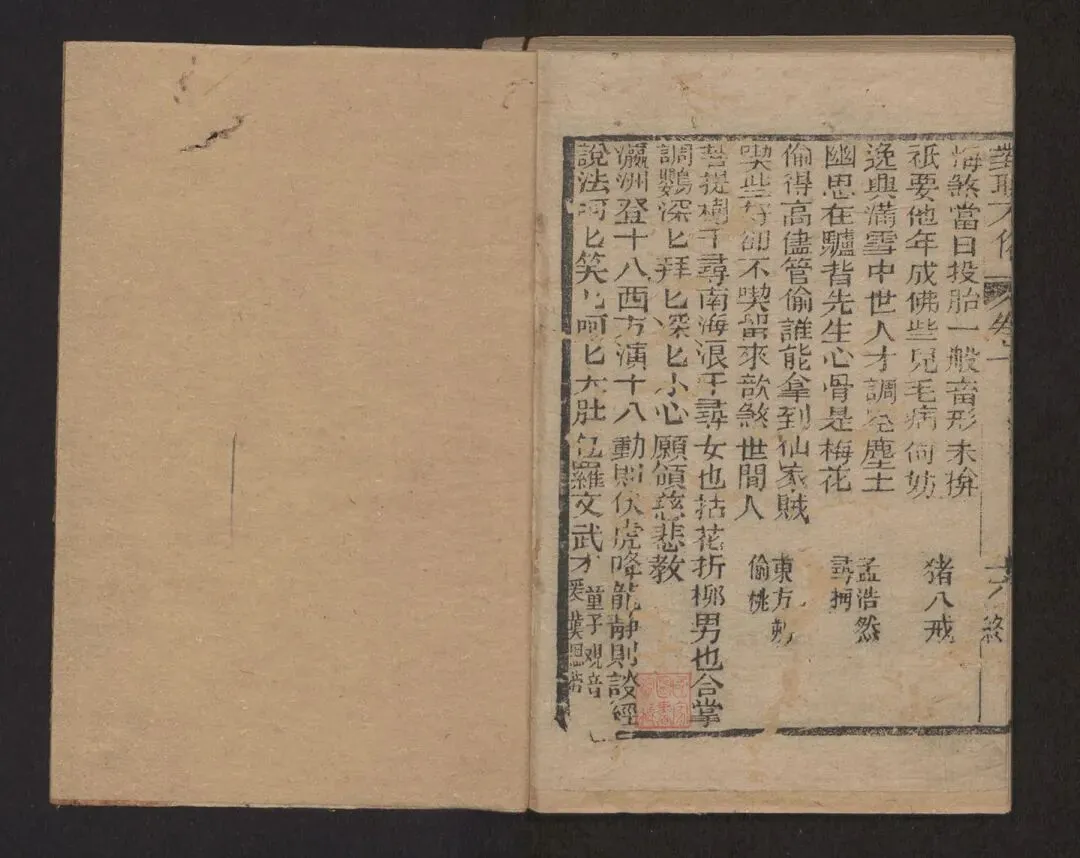 對聯不俗 卷十 十六終
悔煞當日投胎一般畜形未擀 猪八戒
祇要他年成佛些兒毛病何妨
逸興滿雪中世人才調 塵土 孟浩然
幽思在驢背先生心骨是梅花 尋梅
偷得高儘管偷誰能拿到仙家賊 東方朔
喫些好卻不喫留來歆煞世間人 偷桃
菩提樹千尋南海浪千尋女也拈花折柳男也合掌
調鸚深匕拜匕深匕小心願頒慈悲教 童子觀音
瀛洲登十八西方演十八動則伏虎降龍靜則談經
說法呵匕笑匕呵匕大肚包羅文武才